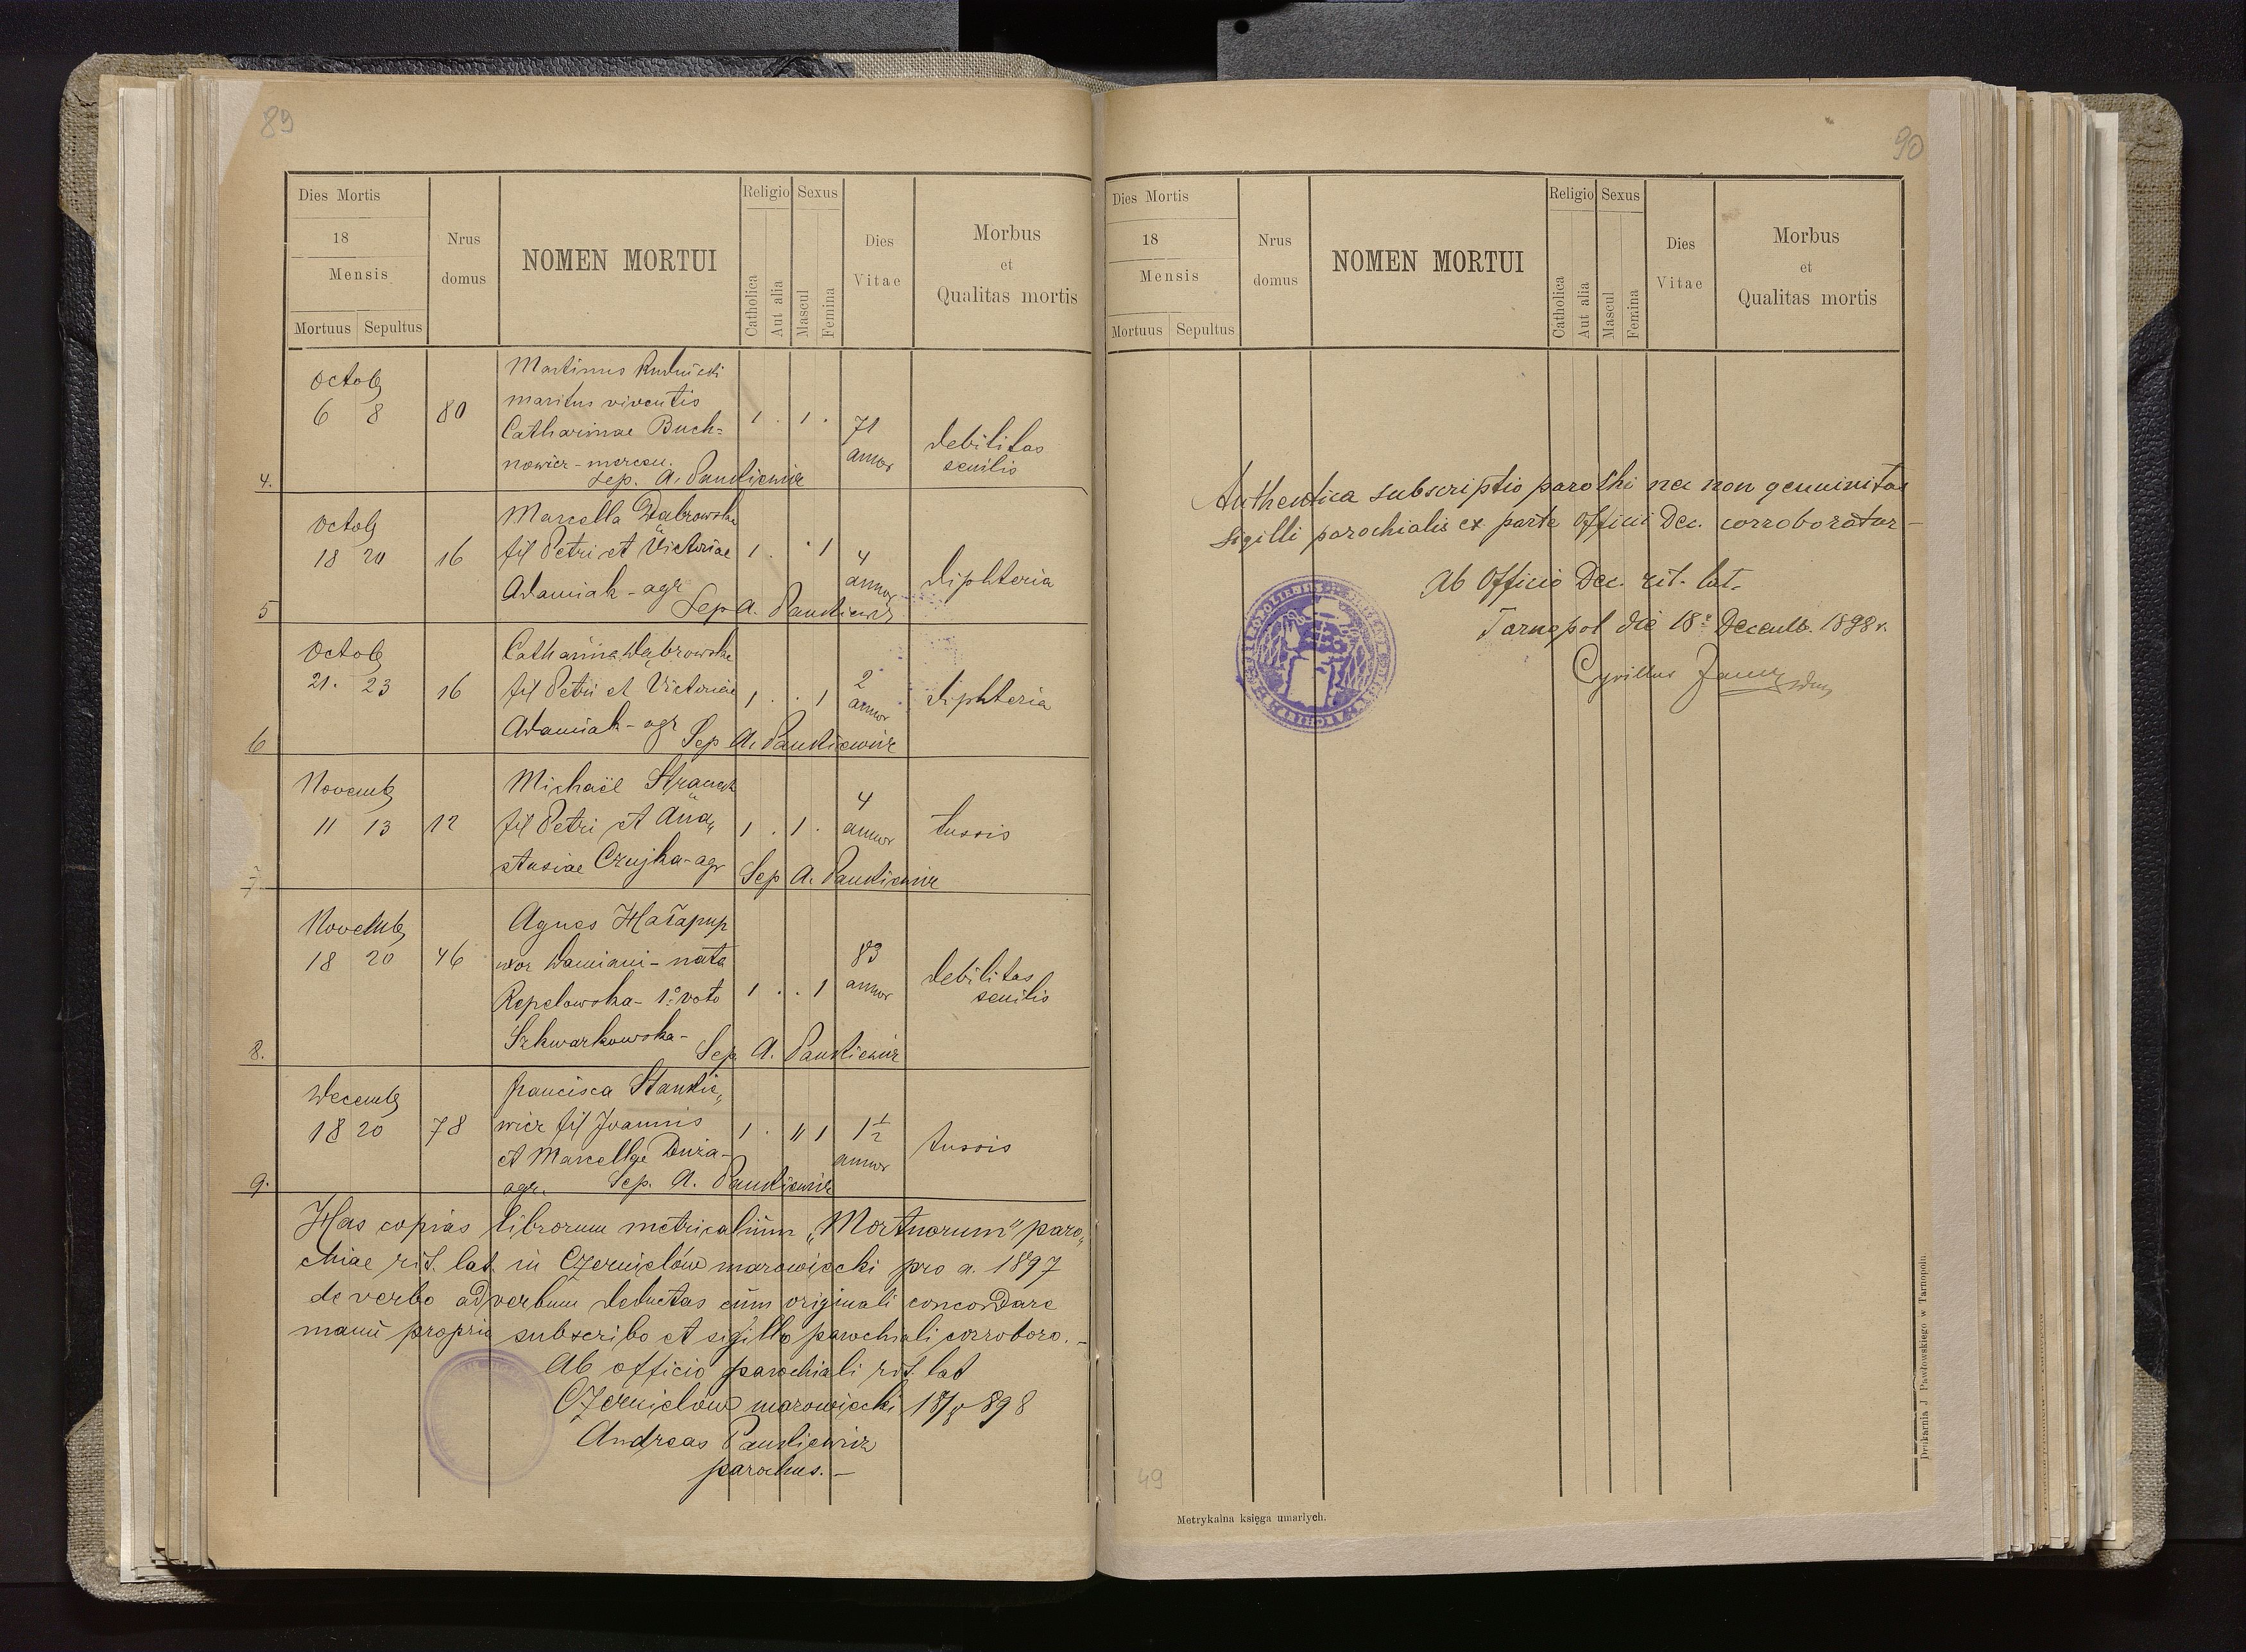 89
Dies Mortis
18
Mensis
Mortuus Sepultus
Nrus
domus
NOMEN MORTUI
Religio
Catholica
Aut alia
Sexus
Mascul
Femina
Dies
Vitae
Morbus
et
Qualitas mortis
4.
Octob
6 8 80
Martinus Rudnicki
maritus viventis
Catharinae Buch=
nowicz - mercen.
1 . 1 .
71
annor
debilitas
senilis
Sep. A. Pankiewicz
5
Octob
18 20 16
Marcella Dąbrowska
fil Petri et Victoriae
Adamiak - agr
1 . . 1
4
annor
diphteria
Sep A. Pankiewicz
6
Octob
21. 23 16
Catharina Dąbrowska
fil Petri et Victoriae
Adamiak - agr
1 . . 1
2
annor
diphteria
Sep A. Pankiewicz
7
Novemb
11 13 12
Michaël
fil Petri et Ana„
stasiae Czujka - agr
1 . 1 .
4
annor
tussis
Sep A. Pankiewicz
8.
Novemb
18 20 46
Agnes
uxor Damiani - nata
Repelowska - 1º voto
Szkwarkowska -
1 . . 1
83
annor
debilitas
senilis
Sep. A. Pankiewicz
9.
Decemb
18 20 78
Francisca Stankie„
wicz fil Joannis
et Marcellae Duża -
agr.
1 . 11 1
1 1/2
annor
tussis
Sep. A. Pankiewicz
Has copias librorum metricalium „Mortuorum" paro„
chiae rit. lat. in Czernielów mazowiecki pro a. 1897
de verbo ad verbum deductas cum originali concordare
manu propria subscribo et sigillo parochiali corroboro. -
Ab officio parochiali rit. lat
Czernielów mazowiecki 18/8 898
Andreas Pankiewicz
parochus. -
90
Dies Mortis
18
Mensis
Mortuus Sepultus
Nrus
domus
NOMEN MORTUI
Religio
Catholica
Aut alia
Sexus
Mascul
Femina
Dies
Vitae
Morbus
et
Qualitas mortis
Authentica subscriptio parochi nec non genuinitas
Sigilli parochialis ex parte Officii Dec. corroboratur -
Ab Officio Dec. rit. lat.
Tarnopol die 18 Decemb. 1898 r.
Cyrillus
49
Metrykalna księga umarłych.
Drukarnia J. Pawłowskiego w Tarnopolu